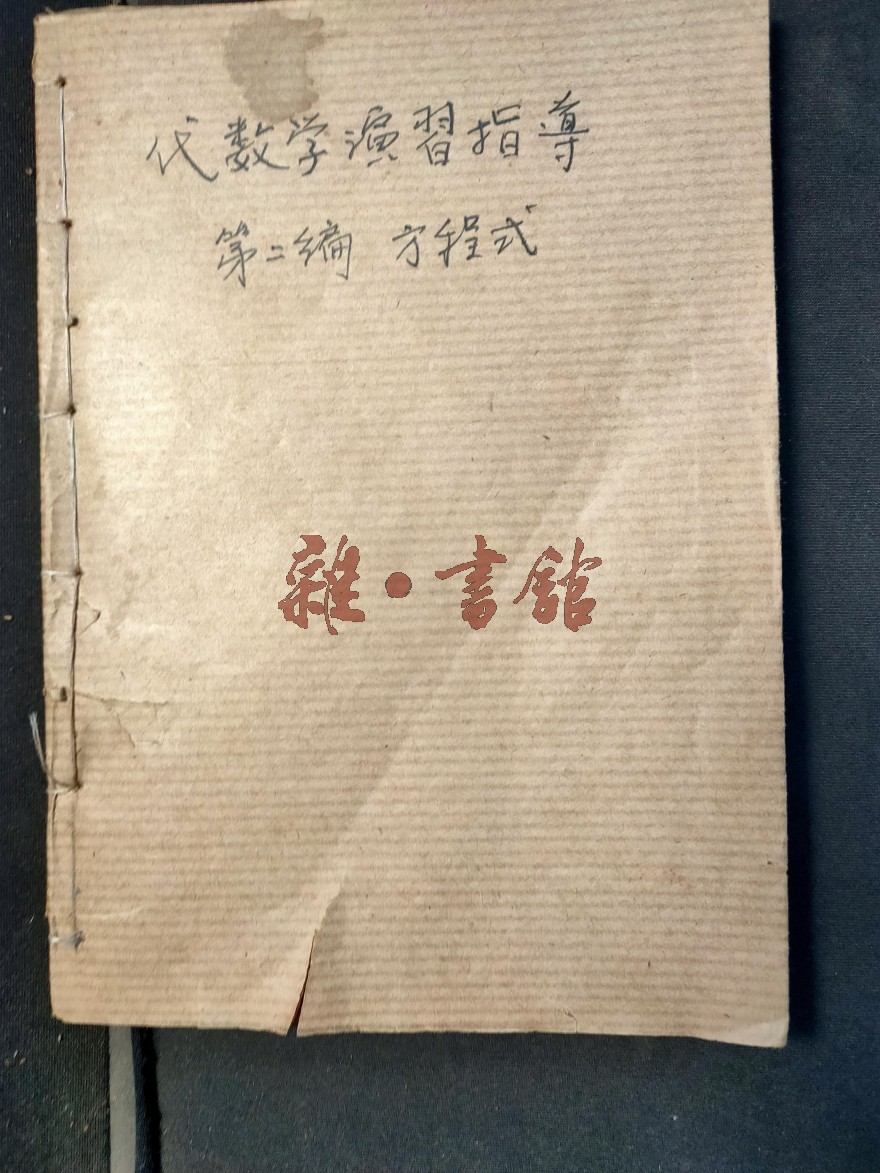 代数学演習指导
第二编 方程式
雜·書館